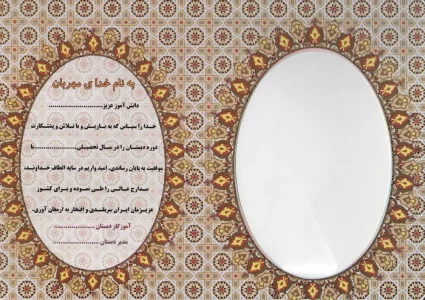 به نام خدا ی مهربان
دانش آموز عزیز..........................
خدا را سپاس که به یاریش و با تلاش و پشتکارت
دوره دبستان را در سال تحصیلی......................با
موفقیت به پایان رساندی. امید واریم در سایه الطاف خداوند،
مدارج عالی را طی نموده و برای کشور
عزیزمان ایران سربلندی و افتخار به ارمغان آوری.
آموزگار دبستان .................
مدیر دبستان .......................